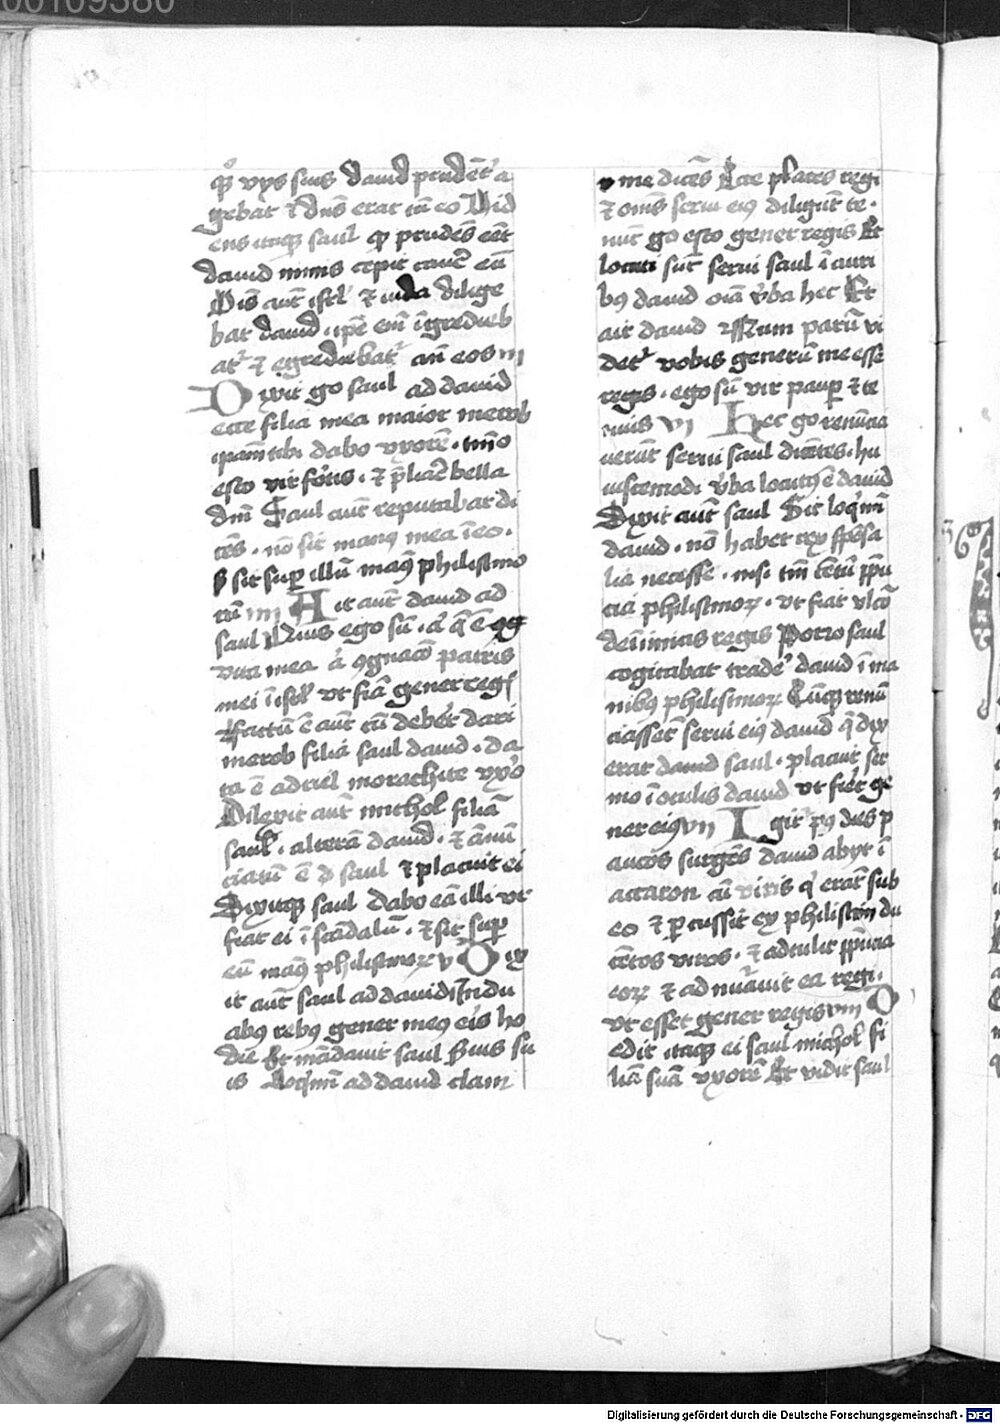 00109380
qꝫ vijs suis dauid prudēt᷑ a
gebat ⁊ dn̄s erat cū eo Vid
ens itaqꝫ saul qꝫ prudēs eēt
dauid nimis cepit cauē eū
Oīs aūt isrl᷑ ⁊ iuda dilige
bat dauid . ipē em̄ īgredieb
at᷑ ⁊ egrediebat᷑ añ eos iii
Dixit g̊o saul ad dauid
ecce filia mea maior merob
ipam̄ tibi dabo vxorē . tm̄o
esto vir fortis . ⁊ p̄liare bella
dm̄ Saul aūt reputabat di
cēs . nō sit manꝰ mea ī eo .
s sit suꝑ illū manꝰ philistino
rū iiii Ait aūt dauid ad
saul Quis ego sū . aꝰ q̄ ē
vita mea aꝰ ꝯgnacō patris
mei ī isrl᷑ vt fiā gener regꝭ
Factū ē aūt cū deberet dari
merob filia saul dauid . da
ta ē adriel molachite vxꝰo
Dilexit aūt michol filiā
saul . alterā dauid . ⁊ ānū
ciatū ē saul ⁊ placuit ei
Dixitqꝫ saul dabo eā illi vt
fiat ei ī scādalū . ⁊ sit suꝑ
eū manꝰ philistinoꝝ v Dix
it aūt saul ad dauid In du
abꝰ rebꝰ gener meꝰ eis ho
die Et mādauit saul ẜuis su
is Loq̄mī ad dauid clam
me dicēs Ecce places regi
⁊ om̄s serui eiꝰ diligūt te .
nūc g̊o esto gener regis Et
locuti sūt serui saul ī auri
bꝰ dauid oīa v̄ba hec Et
ait dauid Num parū vi
det᷑ vobis generū me esse
regis . ego sū vir pauꝑ ⁊ te
nuis vi Hec g̊o renūcia
uerūt serui saul dicētes . hu
iuscemodi v̄ba locutꝰ ē dauid
Dixit aūt saul Sic loq̄mī
dauid . nō habet rex spōsa
lia necesse . nisi tm̄ cētū ꝑpu
cia philistinoꝝ . vt fiat vlcō
de īimicis regis Porro saul
cogitabat tradē dauid ī ma
nibꝰ philistinoꝝ Cūqꝫ renū
ciassēt serui eiꝰ dauid q̄ dix
erat dauid saul . placuit ser
mo ī oculis dauid vt fieret ge
ner regꝭ vii Igit᷑ pꝰ dies p
aucos surgēs dauid abijt ī
accaron cū viris q̇ erāt sub
eo ⁊ ꝑcussit ex philistiim du
cētos viros . ⁊ adtulit ꝑpucia
eoꝝ ⁊ adnūauit ea regi .
vt esset gener regis viii D
edit itaqꝫ ei saul michol fi
liā suā vxorē Et vidit saul
Digitalisierung gefördert durch die Deutsche Forschungsgemeinschaft - DFG